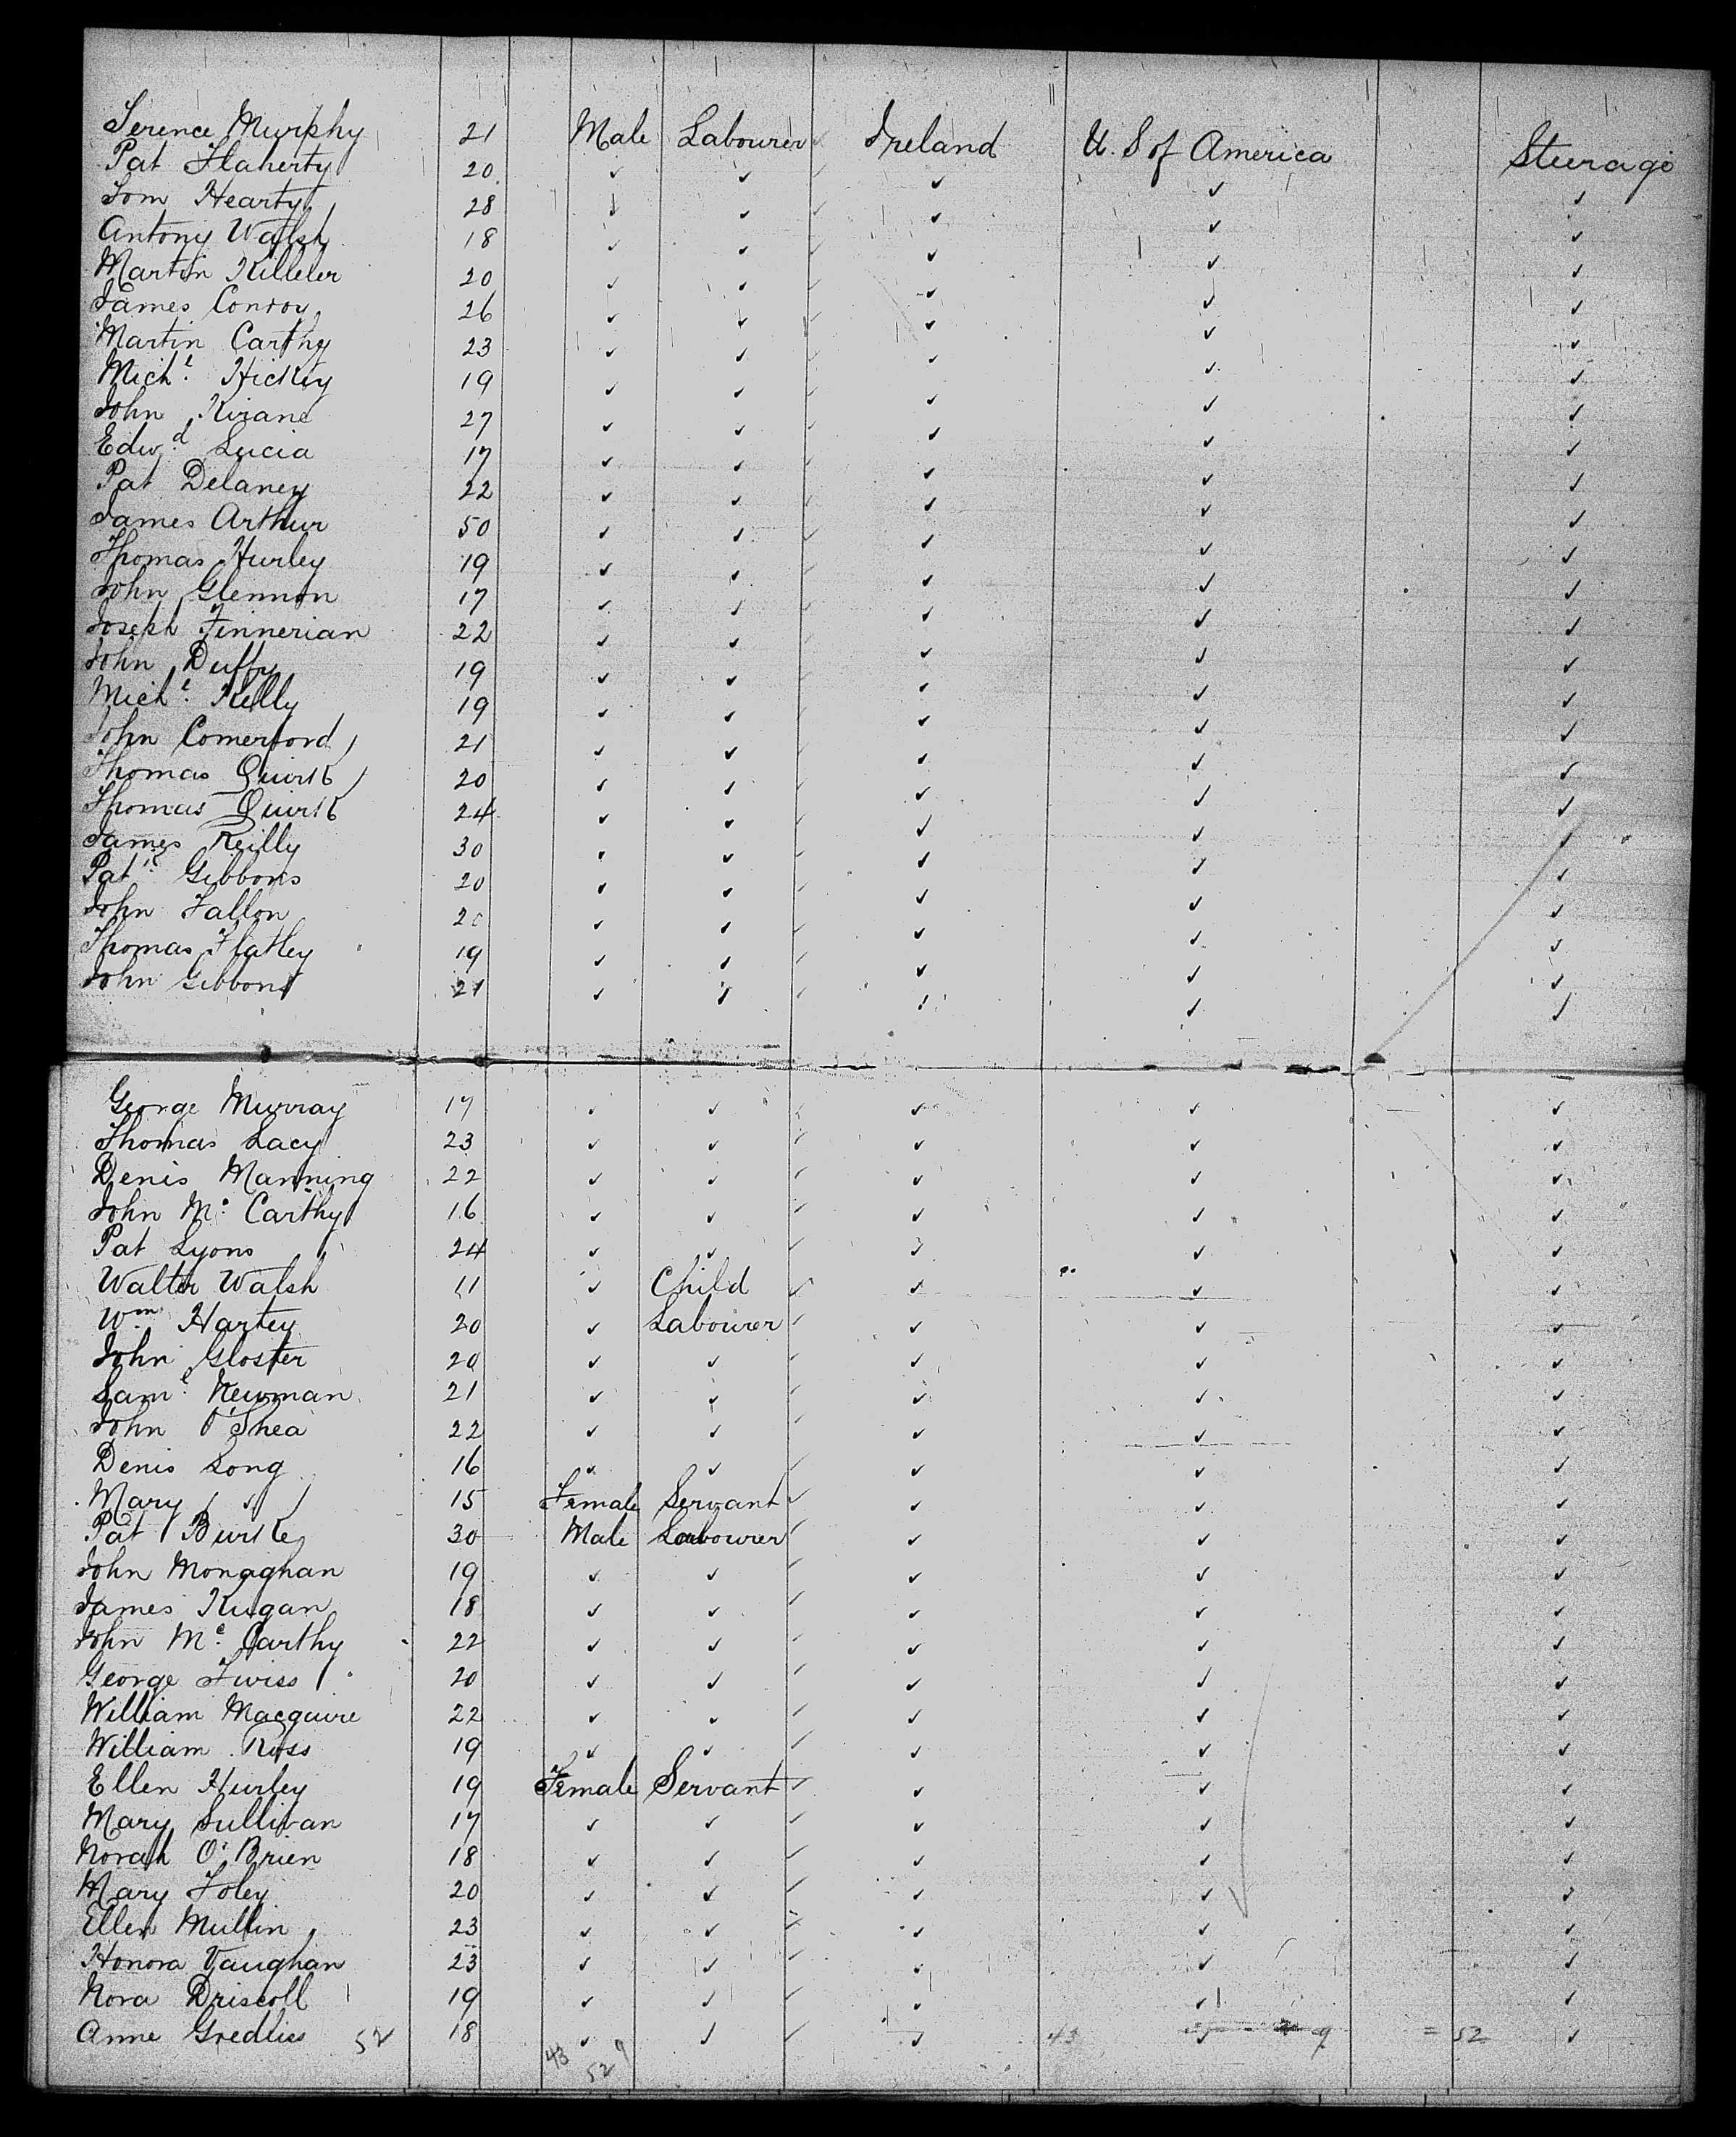 Terence Murphy 21 Male Labourer ✓ Ireland U. S of America Steerage
Pat Flaherty 20 ✓ ✓ ✓ ✓ ✓ ✓
Tom Hearty 28 ✓ ✓ ✓ ✓ ✓ ✓
Antony Walsh 18 ✓ ✓ ✓ ✓ ✓ ✓
Martin Killeler 20 ✓ ✓ ✓ ✓ ✓ ✓
James Conroy 26 ✓ ✓ ✓ ✓ ✓ ✓
Martin Carthy 23 ✓ ✓ ✓ ✓ ✓ ✓
Mich.l Hickey 19 ✓ ✓ ✓ ✓ ✓ ✓
John Kirane 27 ✓ ✓ ✓ ✓ ✓ ✓
Edw.d Lucia 17 ✓ ✓ ✓ ✓ ✓ ✓
Pat Delaney 22 ✓ ✓ ✓ ✓ ✓ ✓
James Arthur 50 ✓ ✓ ✓ ✓ ✓ ✓
Thomas Hurley 19 ✓ ✓ ✓ ✓ ✓ ✓
John Glennon 17 ✓ ✓ ✓ ✓ ✓ ✓
Joseph Finnerian 22 ✓ ✓ ✓ ✓ ✓ ✓
John Duffy 19 ✓ ✓ ✓ ✓ ✓ ✓
Mich.l Kelly 19 ✓ ✓ ✓ ✓ ✓ ✓
John Comerford 21 ✓ ✓ ✓ ✓ ✓ ✓
Thomas Quirk 20 ✓ ✓ ✓ ✓ ✓ ✓
Thomas Quirk 24 ✓ ✓ ✓ ✓ ✓ ✓
James Reilly 30 ✓ ✓ ✓ ✓ ✓ ✓
Pat.k Gibbons 20 ✓ ✓ ✓ ✓ ✓ ✓
John Fallon 20 ✓ ✓ ✓ ✓ ✓ ✓
Thomas Flatley 19 ✓ ✓ ✓ ✓ ✓ ✓
John Gibbons 21 ✓ ✓ ✓ ✓ ✓ ✓
George Murray 17 ✓ ✓ ✓ ✓ ✓ ✓
Thomas Lacy 23 ✓ ✓ ✓ ✓ ✓ ✓
Denis Manning 22 ✓ ✓ ✓ ✓ ✓ ✓
John Mc Carthy 16 ✓ ✓ ✓ ✓ ✓ ✓
Pat Lyons 24 ✓ ✓ ✓ ✓ ✓ ✓
Walter Walsh 11 ✓ Child ✓ ✓ ✓ ✓
Wm Hartey 20 ✓ Labourer ✓ ✓ ✓ ✓
John Gloster 20 ✓ ✓ ✓ ✓ ✓ ✓
Sam.l Newman 21 ✓ ✓ ✓ ✓ ✓ ✓
John O'Shea 22 ✓ ✓ ✓ ✓ ✓ ✓
Denis Long 16 ✓ ✓ ✓ ✓ ✓ ✓
Mary " 15 Female Servant ✓ ✓ ✓ ✓
Pat Burke 30 Male Labourer ✓ ✓ ✓ ✓
John Monaghan 19 ✓ ✓ ✓ ✓ ✓ ✓
James Keegan 18 ✓ ✓ ✓ ✓ ✓ ✓
John Mc Carthy 22 ✓ ✓ ✓ ✓ ✓ ✓
George Twiss 20 ✓ ✓ ✓ ✓ ✓ ✓
William Macguire 22 ✓ ✓ ✓ ✓ ✓ ✓
William Ross 19 ✓ ✓ ✓ ✓ ✓ ✓
Ellen Hurley 19 Female Servant ✓ ✓ ✓ ✓
Mary Sullivan 17 ✓ ✓ ✓ ✓ ✓ ✓
Norah O'Brien 18 ✓ ✓ ✓ ✓ ✓ ✓
Mary Foley 20 ✓ ✓ ✓ ✓ ✓ ✓
Ellen Mullin 23 ✓ ✓ ✓ ✓ ✓ ✓
Honora Vaughan 23 ✓ ✓ ✓ ✓ ✓ ✓
Nora Driscoll 19 ✓ ✓ ✓ ✓ ✓ ✓
Anne Gredliss 52 18 ✓ ✓ ✓ ✓ 43 ✓ 9 = 52 ✓
43 9
52